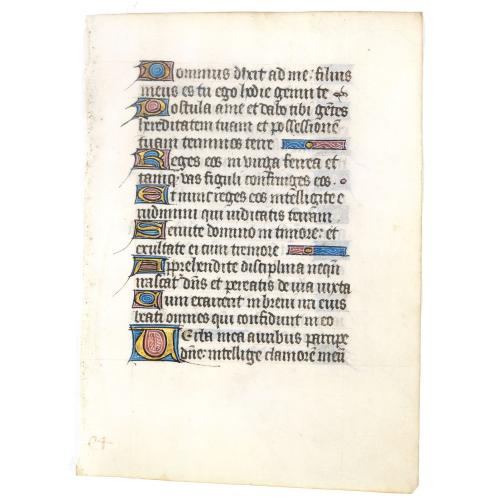 Dominus dixit ad me: filius
meus es tu ego hodie genui te
Postula a me et dabo tibi gentes
hereditatem tuam et possessionē
tuam terminos terre
Reges eos in virga ferrea et
tanq̄ vas figuli confringes eos.
Et nunc reges eos intelligite e
rudimini qui iudicatis terram
Servite domino in timore: et
exultate ei cum tremore
Apprehendite disciplina neqū
irascat dn̄s et pereatis de via iuxta
Cum exarcerit in brevi ira eius
beati omnes qui confidunt in eo
Verba mea auribus percipe
dn̄e: intellige clamorē meū